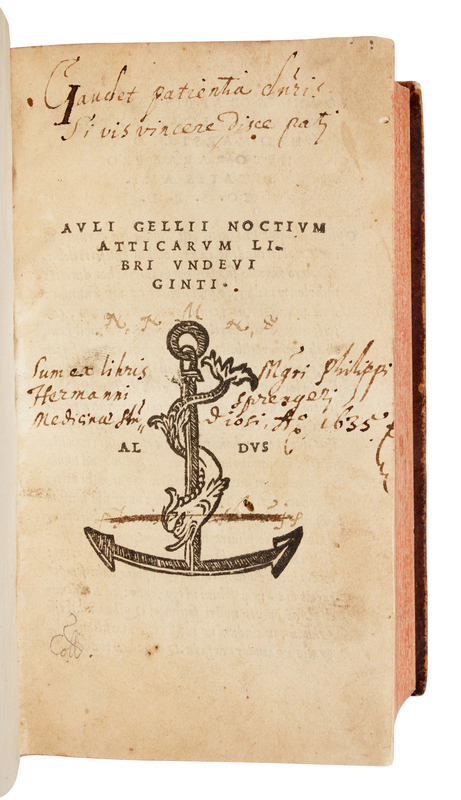 Gaudet patientia duris
Si vis vincere disce pati
AVLI GELLII NOCTIVM
ATTICARVM LI-
BRI VNDEVI
GINTI.
Sum ex libris Mgri Philippi
Hermanni Sprengerj
Medicinæ Stu diosi, Aº 1635
AL DVS
Coll.